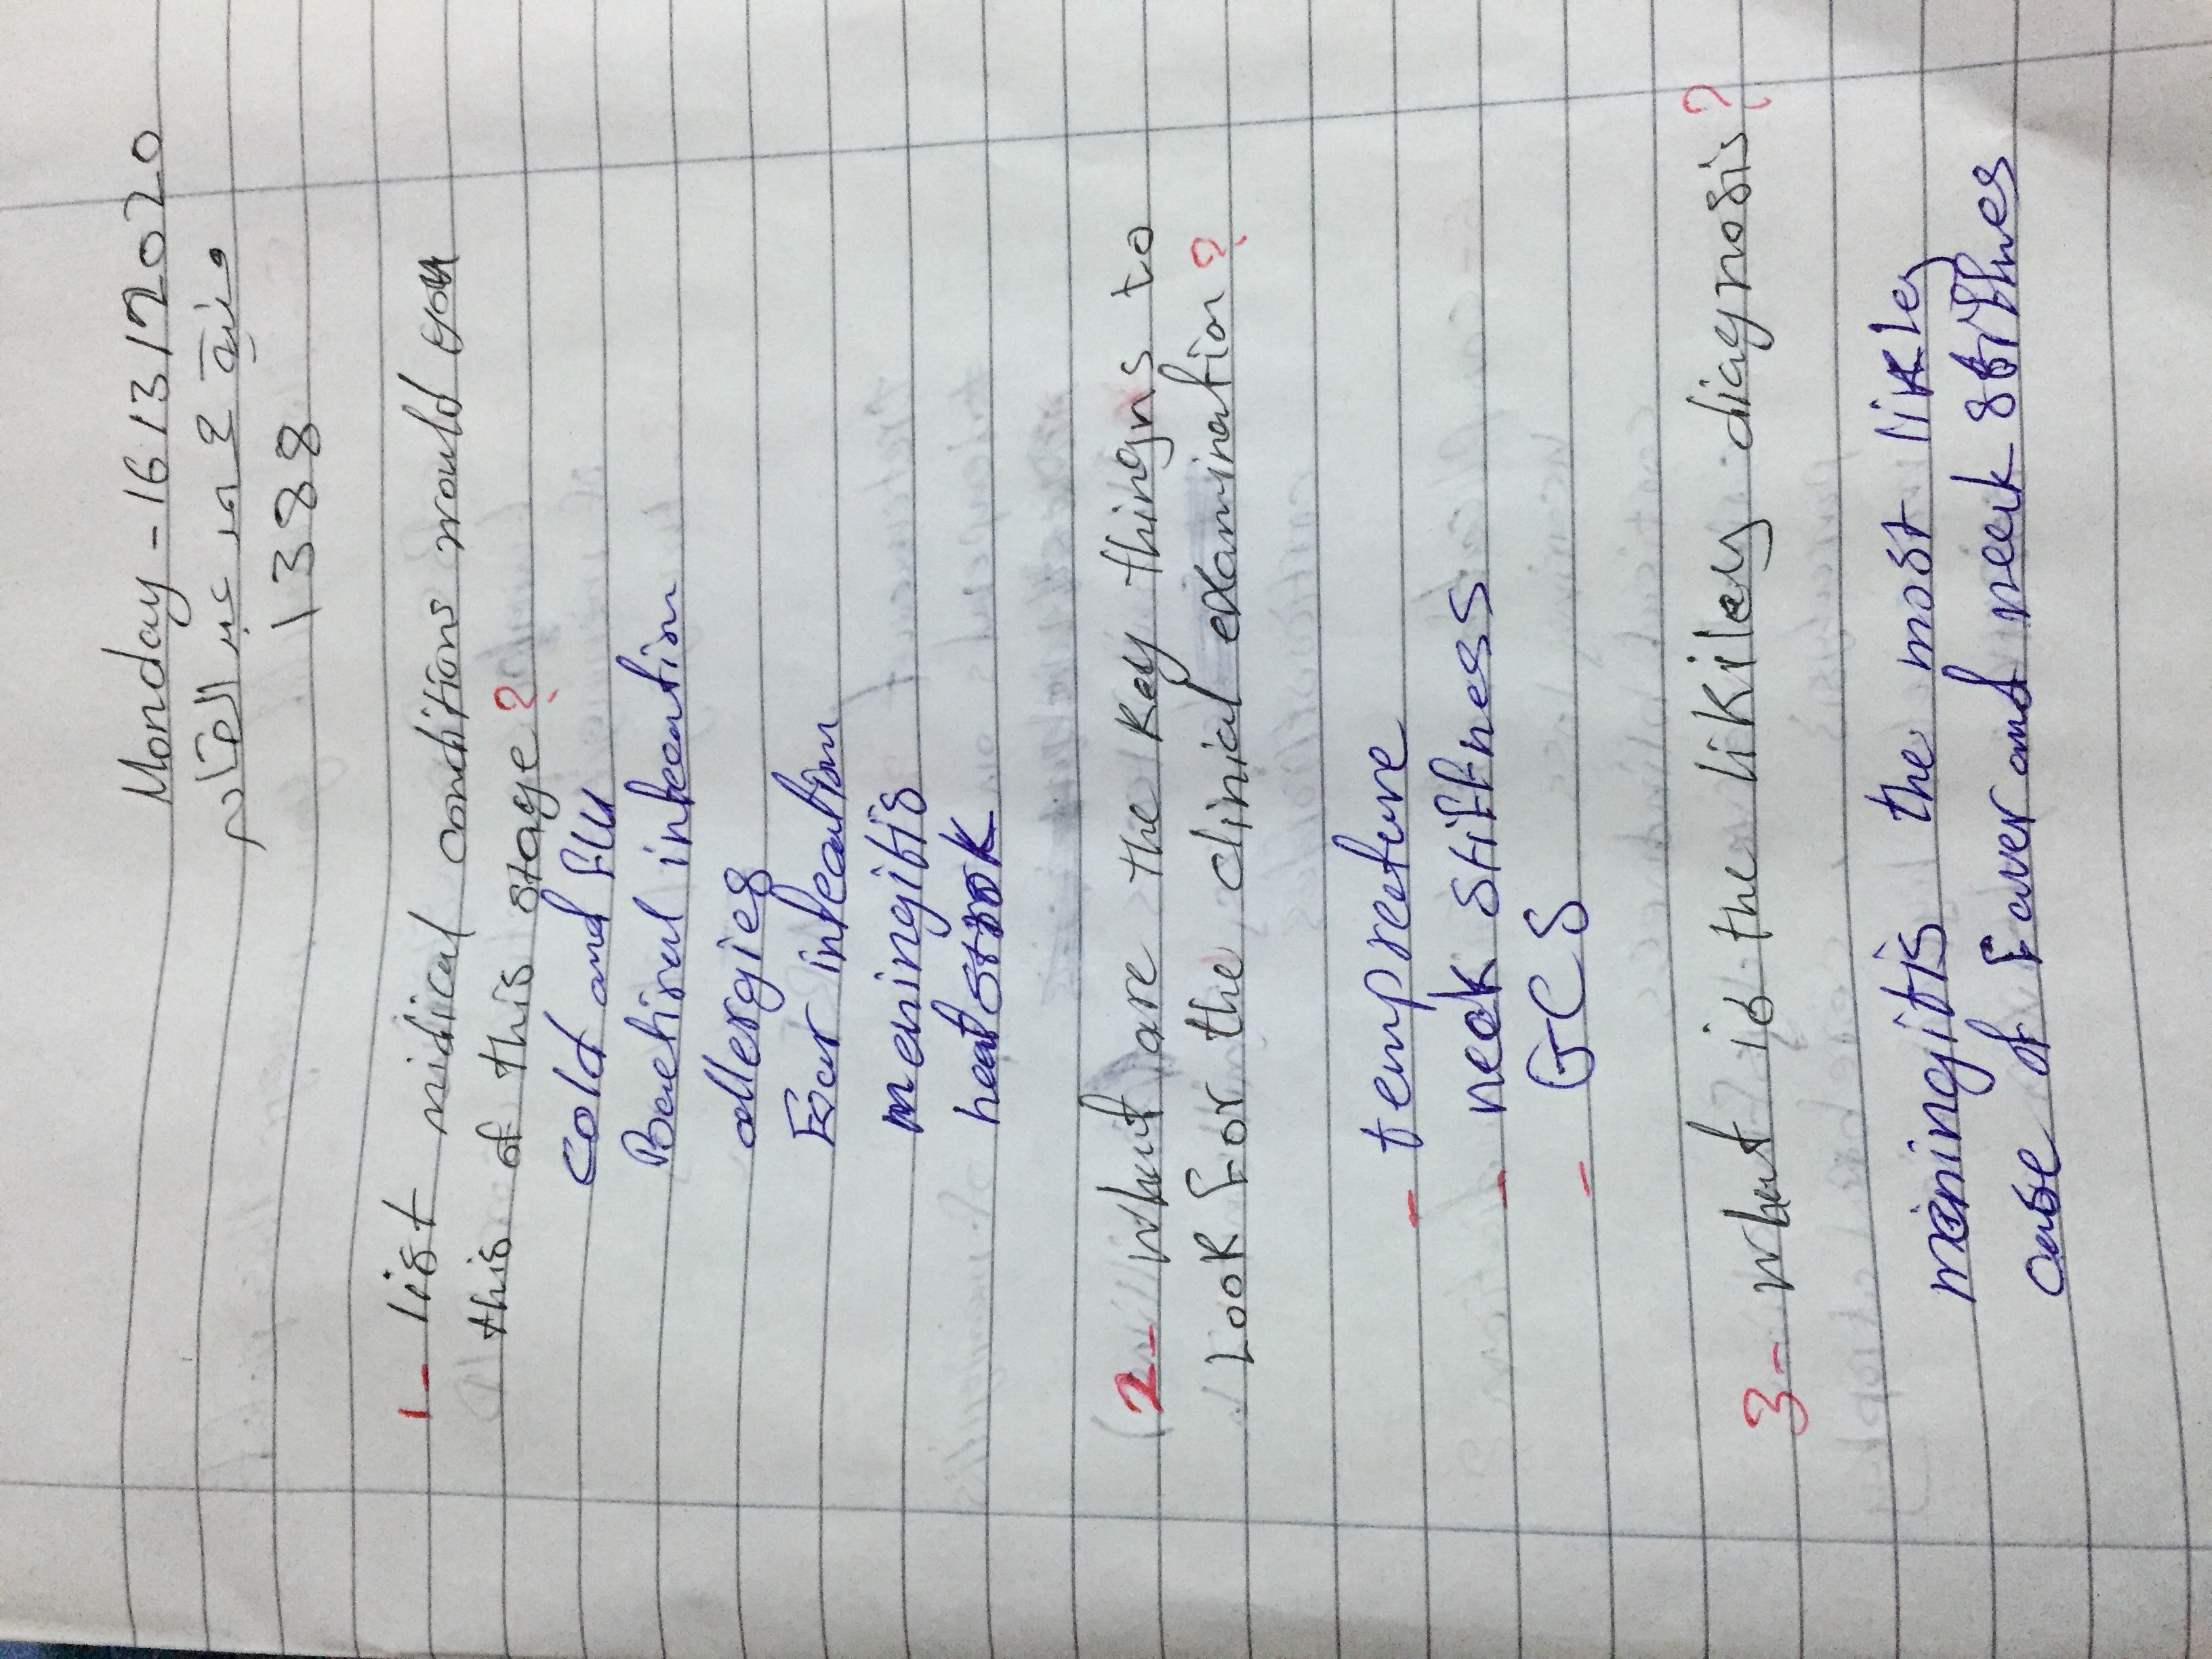 Monday - 16/3/2020
منية عمر عبد القادر
1388
1- list midical conditions would you
this of this stage?
Cold and Flu
Bactiral infecation
allergies
Ear infecation
meningitis
heat strok
2- what are the Key thingns to
Look For the clinical examination?
- tempreture
- neck stiffness
- GCS
3- what is the likiley diagnosis?
meningitis the most likley
case of Faver and neck stifnes